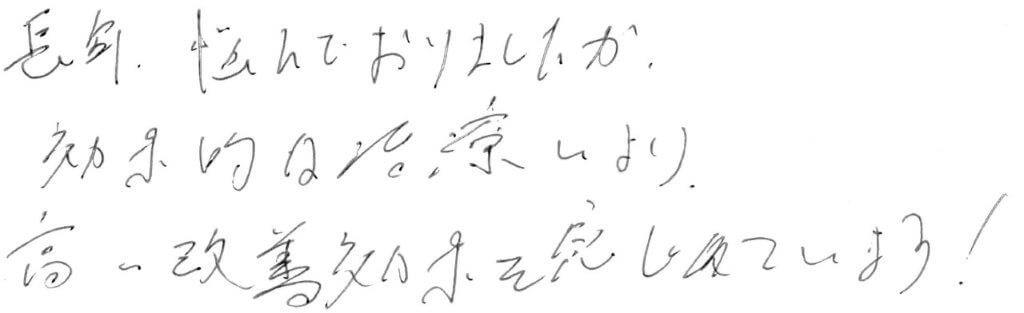 長年、悩んでおりましたが、
効果的な治療により、
高い改善効果を感じ取ています!